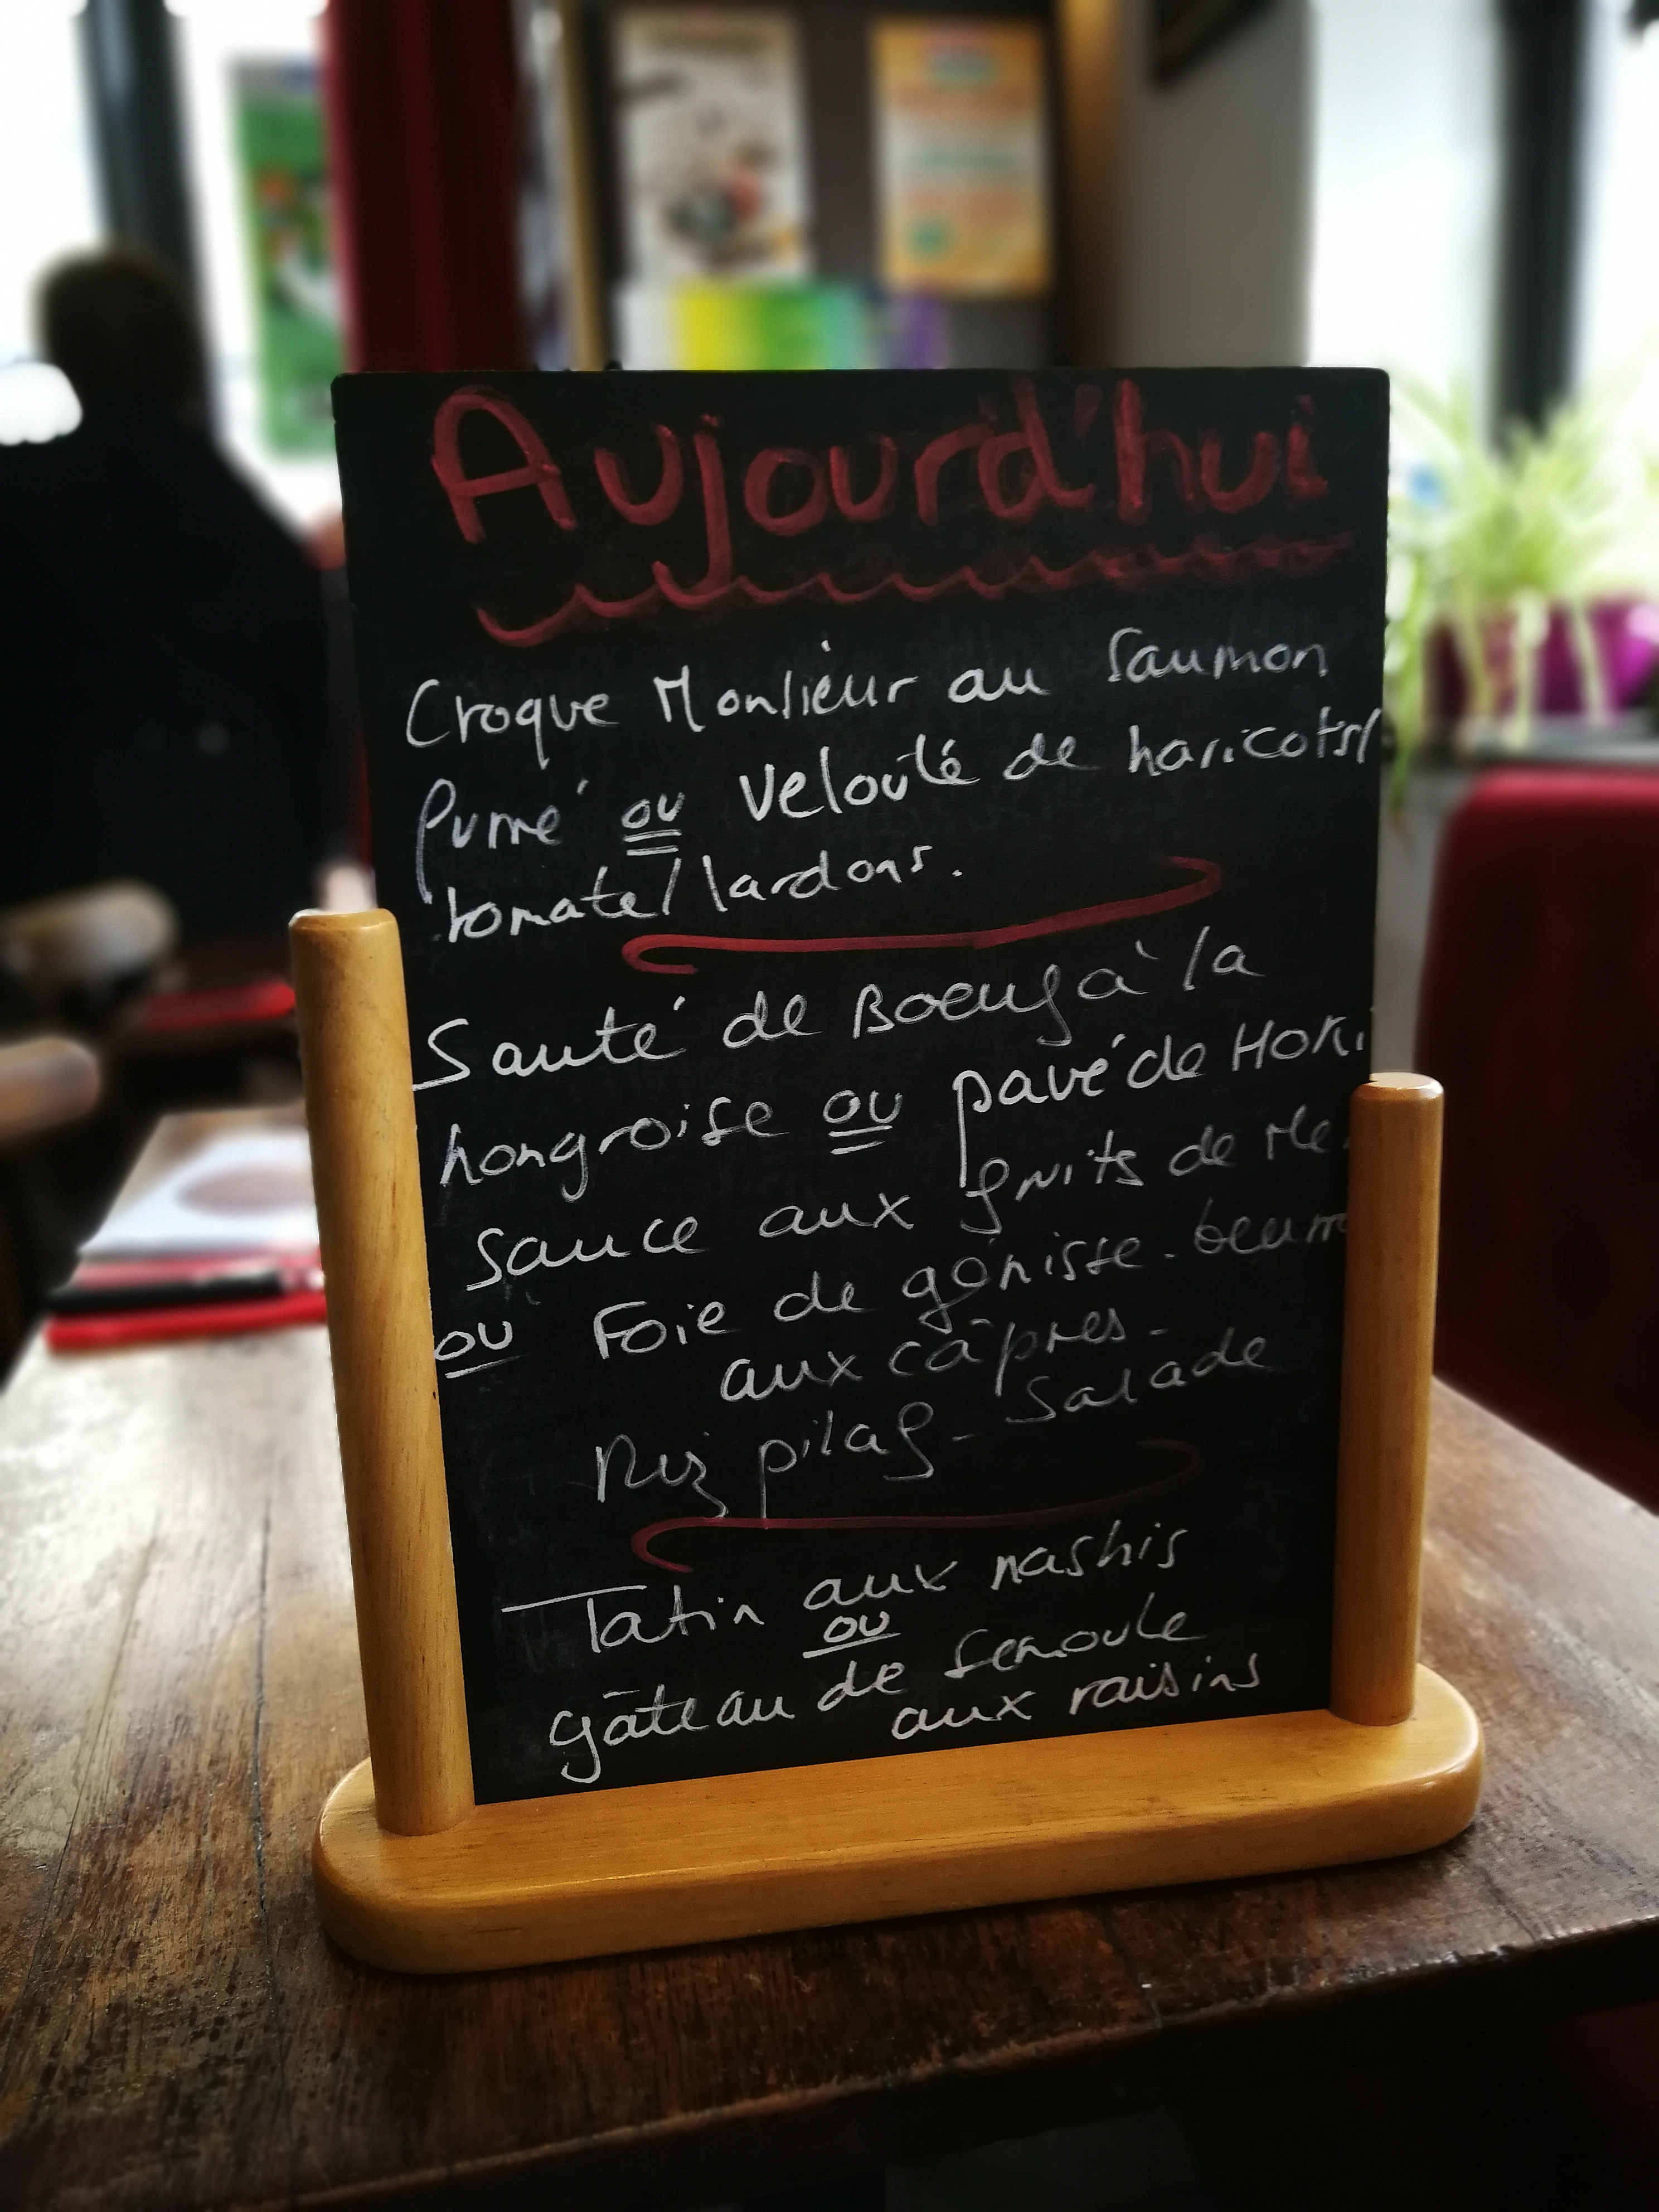 Aujourd'hui
Croque Monsieur au Saumon
fumé ou velouté de haricots/
tomate/lardons.
Sauté de Boeuf à la
hongroise ou pavé de Hoki
sauce aux fruits de Mer
ou Foie de génisse - beurre
aux câpres -
Riz pilaf - Salade
Tatin aux nashis
ou
gâteau de semoule
aux raisins